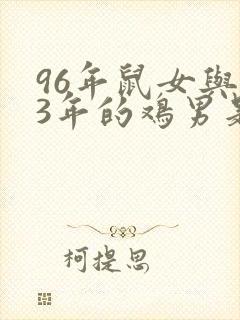 96年鼠女與
3年的鸡男
柯提思